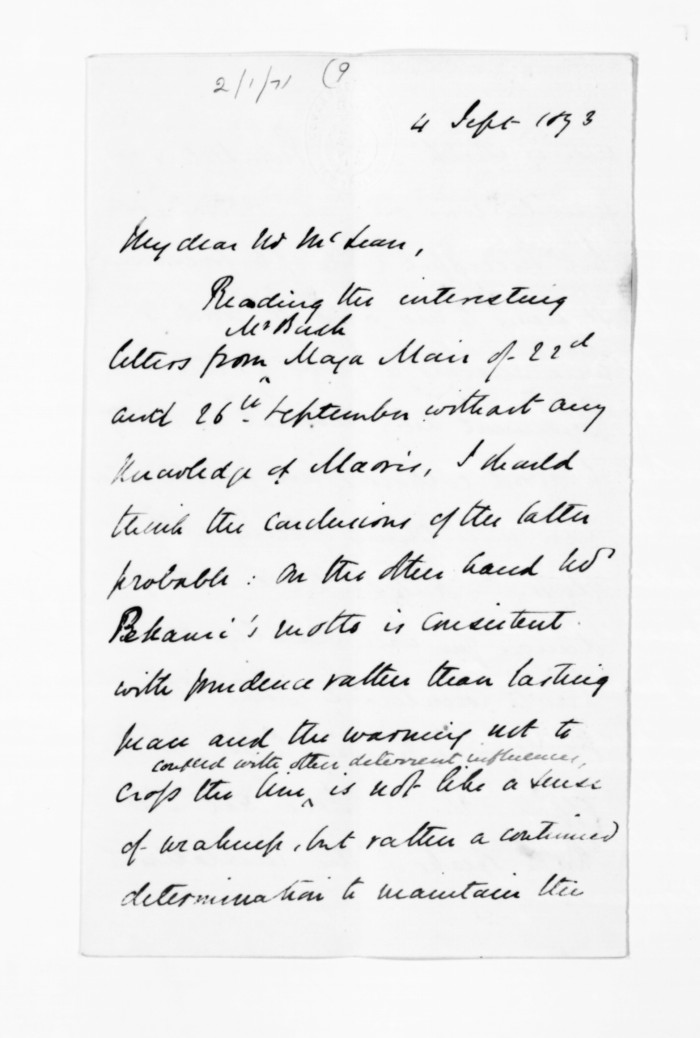 2/1/71 (9
4 Sept 1873
My dear Mr McLean,
Reading the interesting
Mr Bush
letters from Maja Mair of 22d
and 26th September without any
knowledge of Maoris, I should
think the conclusions of the latter
probable: on the other hand Mr
's motto is consistent
with prudence rather than lasting
peace and the warning not to
coupled with other deterrent influences,
cross the line is not like a sense
of weakness, but rather a continued
determination to maintain the